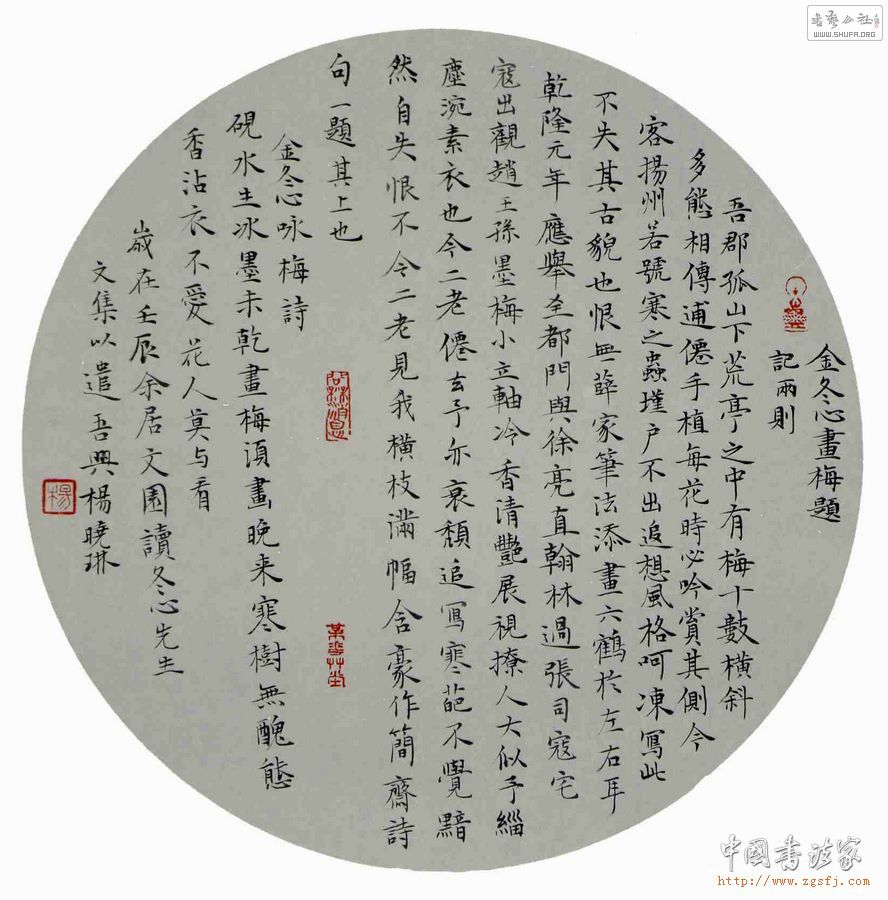 金冬心畫梅題
記兩則
吾郡孤山下荒亭之中有梅十數橫斜
多態相傳逋僊手植每花時必吟賞其側今
客揚州若號寒之蟲墐户不出追想風格呵凍寫此
不失其古貌也恨無薛家筆法添畫六鶴於左右耳
乾隆元年應舉至都門與徐亮直翰林過張司寇宅
寇出觀趙王孫墨梅小立軸冷香清艷展視撩人大似予緇
塵涴素衣也今二老僊去予亦衰頹追寫寒葩不覺黯
然自失恨不令二老見我橫枝滿幅含豪作簡齋詩
句一題其上也
金冬心咏梅詩
硯水生冰墨未乾畫梅須畫晚来寒樹無醜態
香沾衣不愛花人莫与看
歲在壬辰余居文園讀冬心先生
文集以遣吾興楊曉琳
楊
書藝公社
WWW.SHUFA.ORG
中國書法家
http://www.zgsfj.com